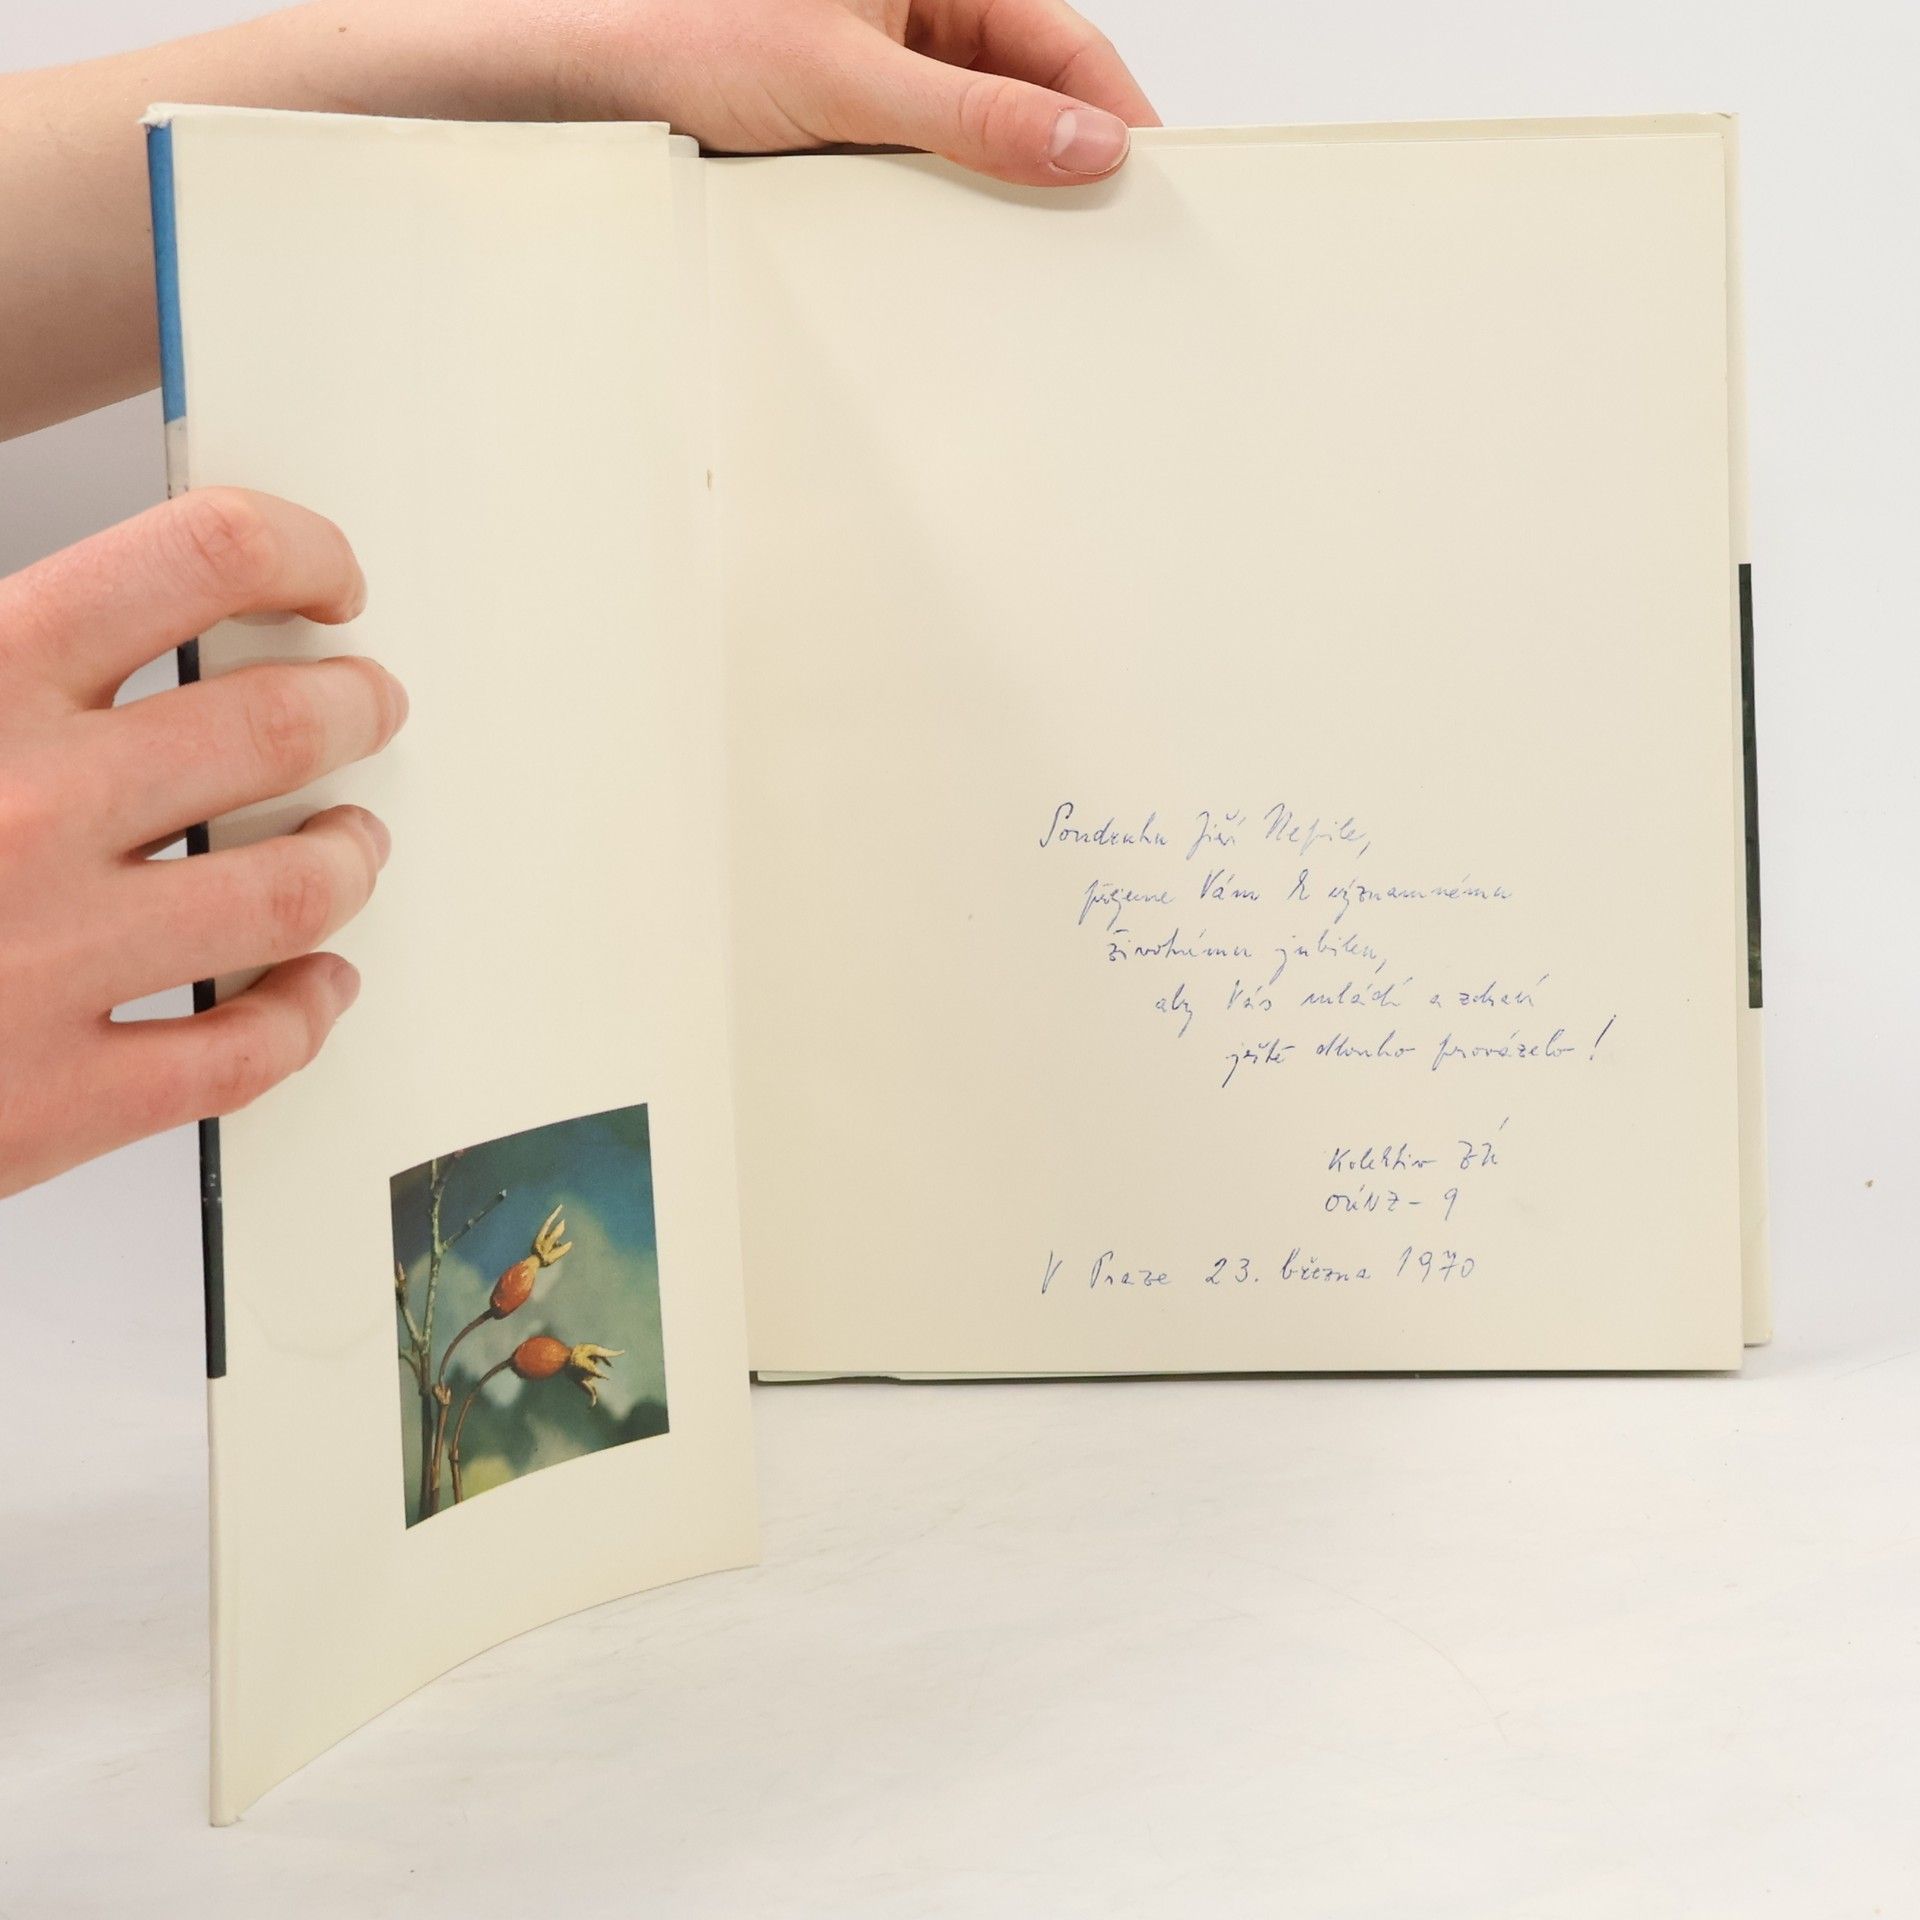 Soudruhu Jiří Nepile,
přejeme Vám k významnému
životnímu jubileu,
aby Vás mládí a zdraví
ještě dlouho provázelo!
Kolektiv ZÚ
OÚNZ - 9
V Praze 23. března 1970